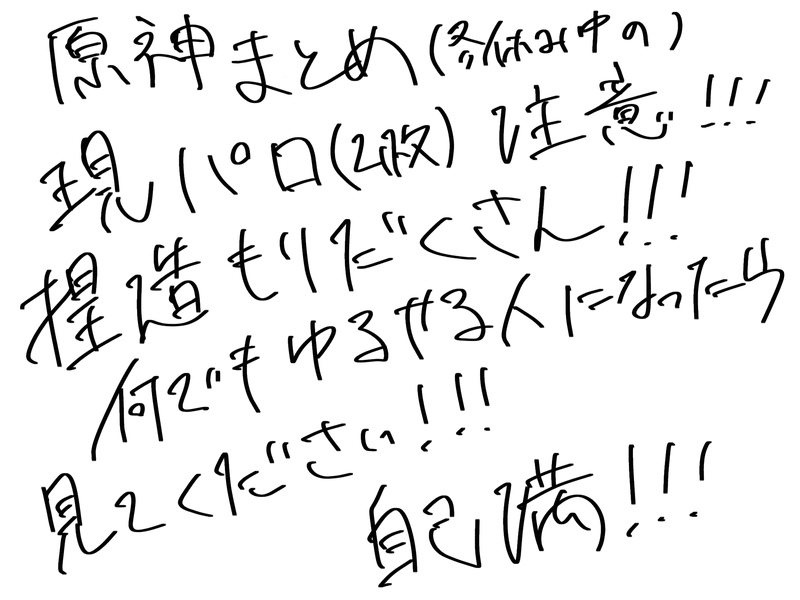 原神まとめ(冬休み中の)
現パロ(2枚)注意!!!
捏造もりだくさん!!!
何でもゆるせる人になったら
見てください!!!
自己満!!!